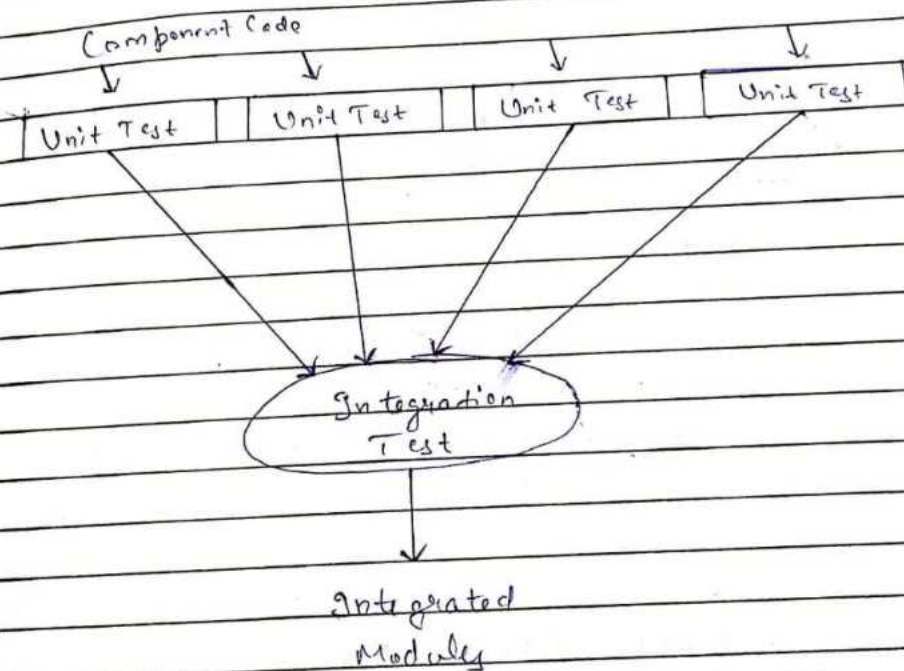 Component Code
Unit Test Unit Test Unit Test Unit Test
Integration
Test
Integrated
Modules